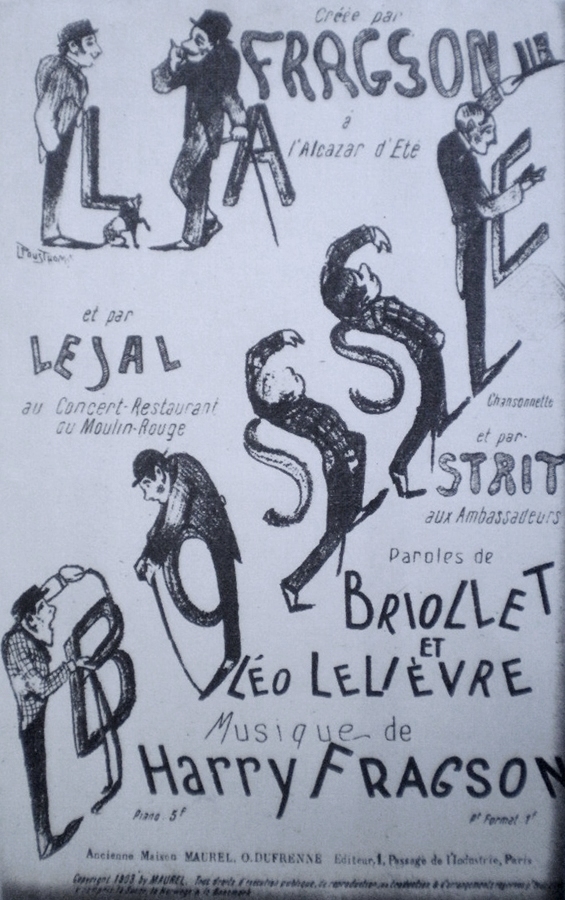 Créée par
FRAGSON
à
l'Alcazar d'Eté
LA
BOSSE
Chansonnette
et par
LEJAL
au Concert-Restaurant
du Moulin-Rouge
et par
STRIT
aux Ambassadeurs
Paroles de
BRIOLLET
ET
LÉO LELIÈVRE
Musique de
Harry FRAGSON
Piano. 5f
Pt Format. 1f
Ancienne Maison MAUREL, O. DUFRENNE Editeur, 1, Passage de l'Industrie, Paris
Copyright 1903 by MAUREL. Tous droits d'exécution publique, de reproduction, de traduction & d'arrangements réservés
y compris la Suède, la Norwège & le Danemark